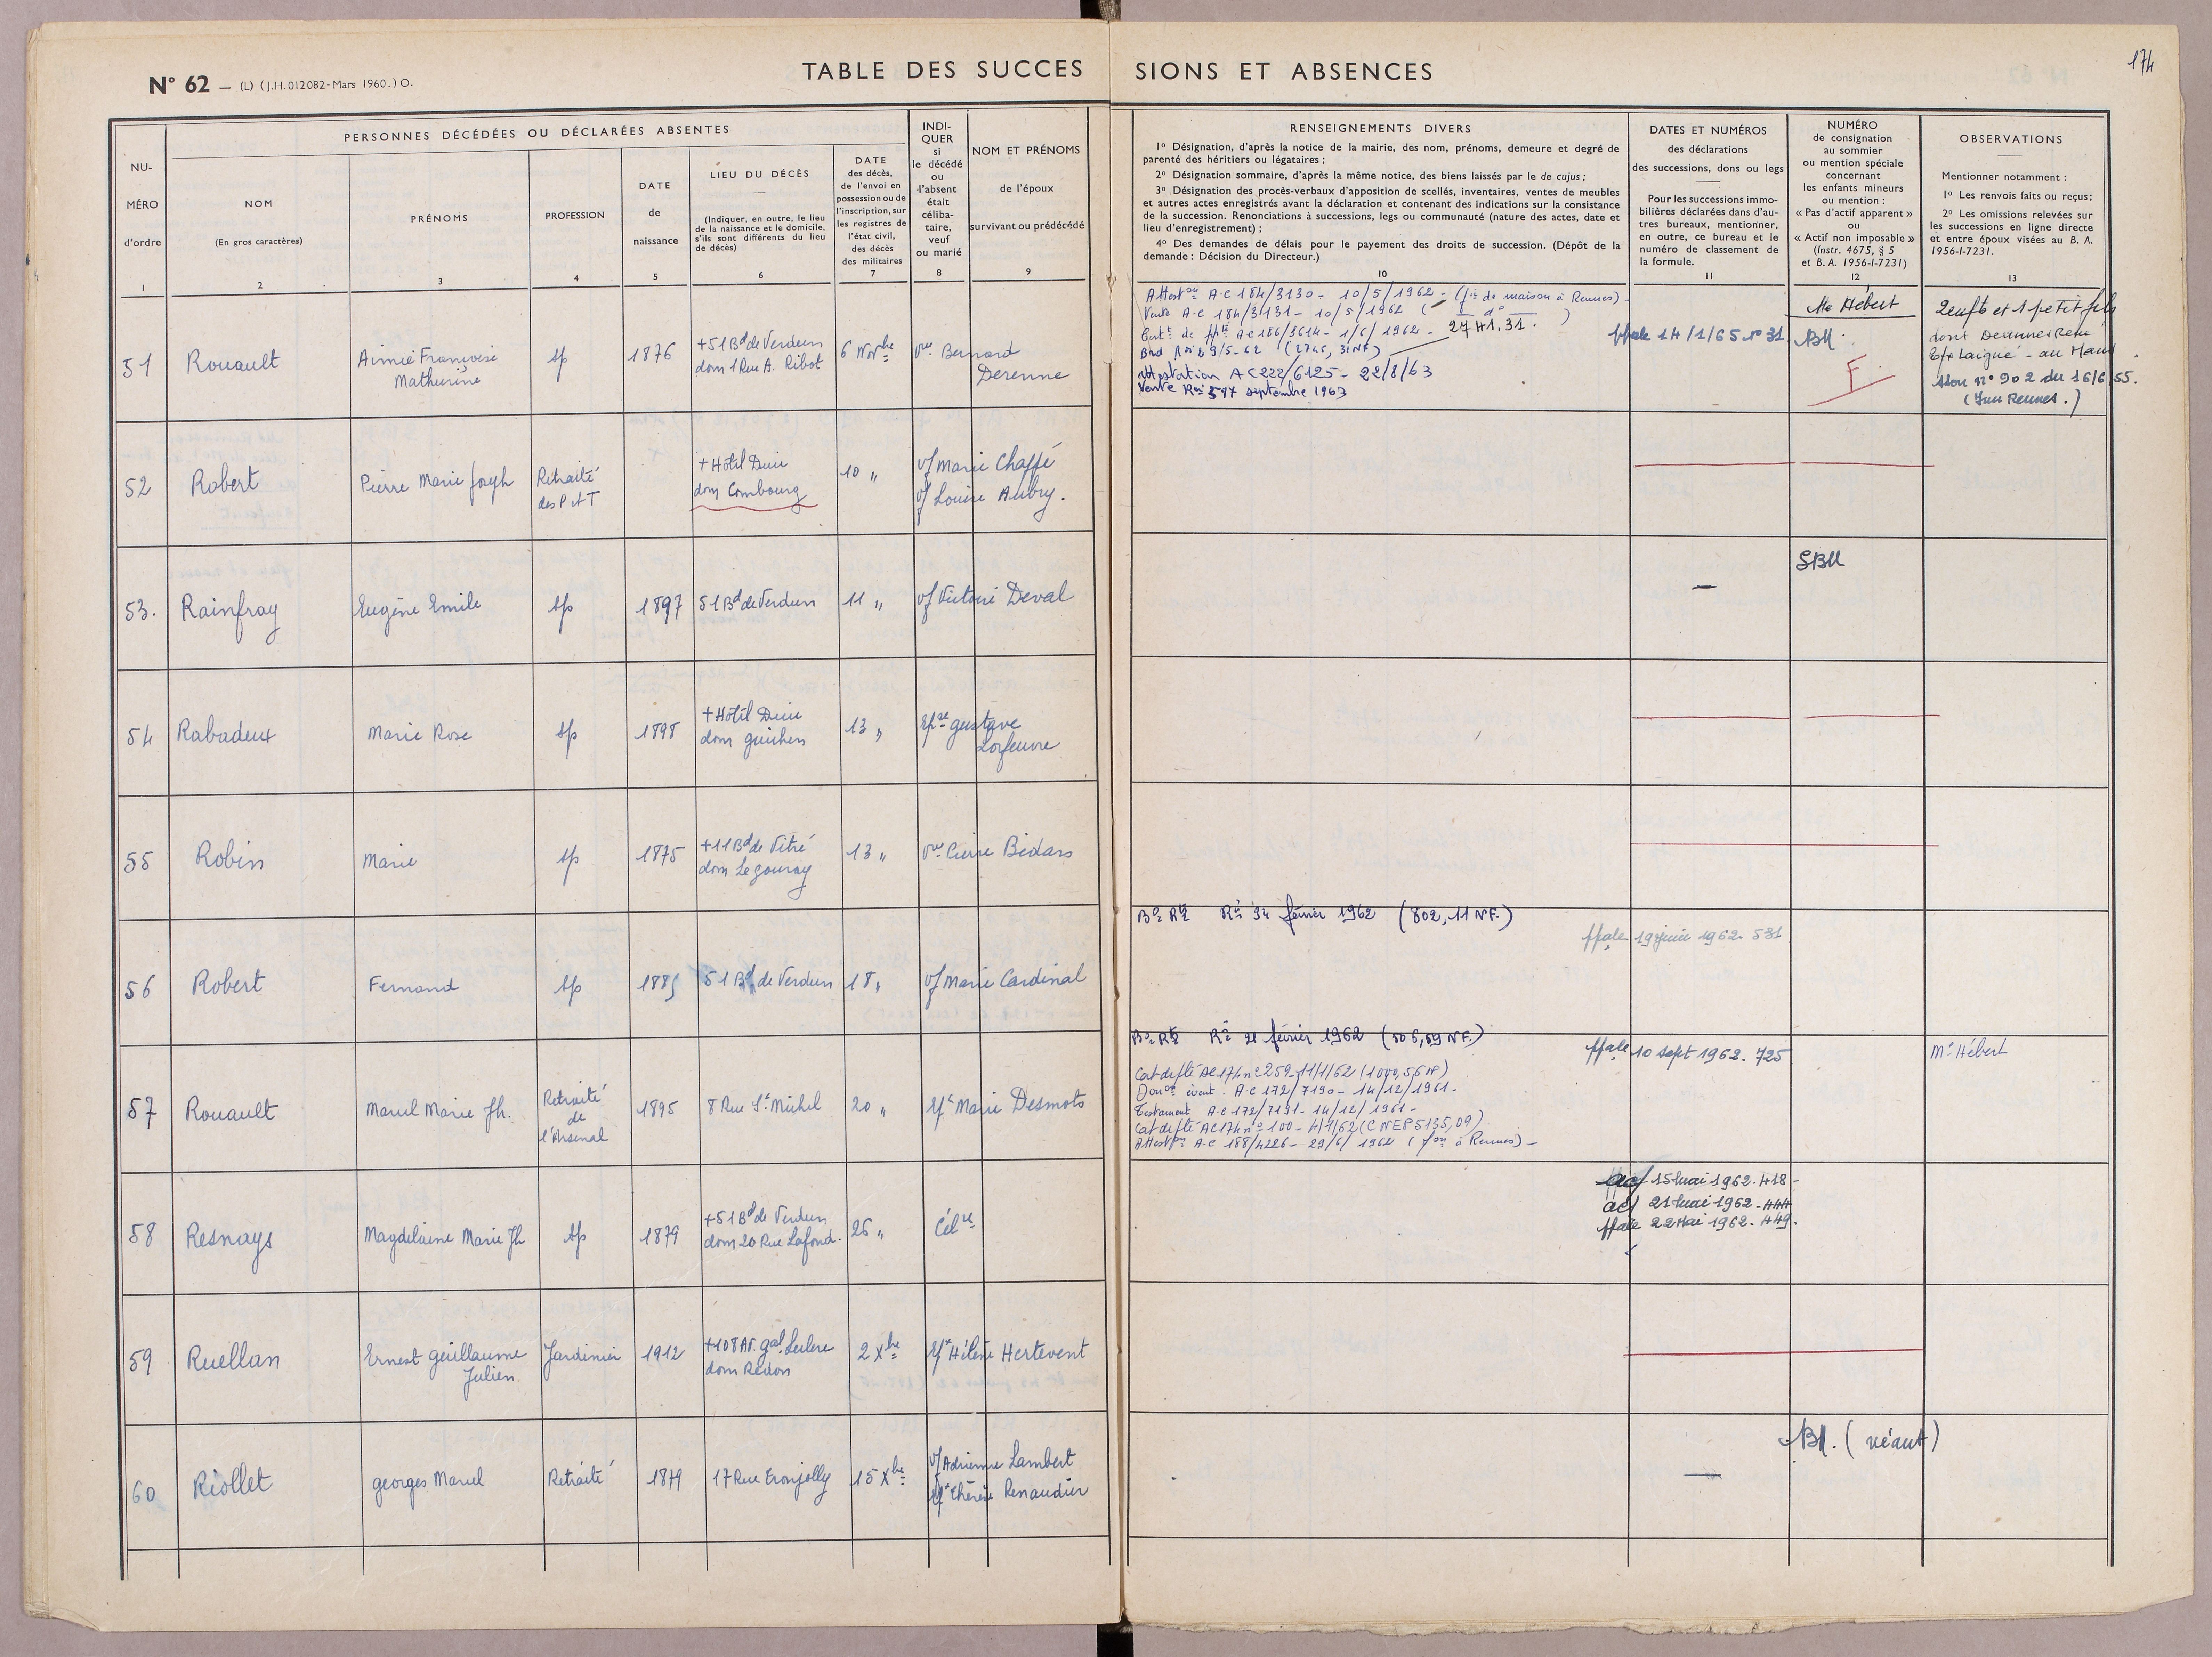 N° 62 — (L) (J.H.012082-Mars 1960.) O.
TABLE DES SUCCESSIONS ET ABSENCES
174
NUMÉRO d'ordre
PERSONNES DÉCÉDÉES OU DÉCLARÉES ABSENTES
NOM
(En gros caractères)
PRÉNOMS
PROFESSION
DATE
de
naissance
LIEU DU DÉCÈS
(Indiquer, en outre, le lieu
de la naissance et le domicile,
s'ils sont différents du lieu
de décès)
DATE
des décès,
de l'envoi en
possession ou de
l'inscription, sur
les registres de
l'état civil,
des décès
des militaires
INDI-
QUER
si
le décédé
ou
l'absent
était
céliba-
taire,
veuf
ou marié
NOM ET PRÉNOMS
de l'époux
survivant ou prédécédé
RENSEIGNEMENTS DIVERS
1° Désignation, d'après la notice de la mairie, des nom, prénoms, demeure et degré de
parenté des héritiers ou légataires ;
2° Désignation sommaire, d'après la même notice, des biens laissés par le de cujus ;
3° Désignation des procès-verbaux d'apposition de scellés, inventaires, ventes de meubles
et autres actes enregistrés avant la déclaration et contenant des indications sur la consistance
de la succession. Renonciations à successions, legs ou communauté (nature des actes, date et
lieu d'enregistrement) ;
4° Des demandes de délais pour le payement des droits de succession. (Dépôt de la
demande : Décision du Directeur.)
DATES ET NUMÉROS
des déclarations
des successions, dons ou legs
Pour les successions immo-
bilières déclarées dans d'au-
tres bureaux, mentionner,
en outre, ce bureau et le
numéro de classement de
la formule.
NUMÉRO
de consignation
au sommier
ou mention spéciale
concernant
les enfants mineurs
ou mention :
« Pas d'actif apparent »
ou
« Actif non imposable »
(Instr. 4675, § 5
et B. A. 1956-I-7231)
OBSERVATIONS
Mentionner notamment :
1° Les renvois faits ou reçus ;
2° Les omissions relevées sur
les successions en ligne directe
et entre époux visées au B. A.
1956-I-7231.
1 2 3 4 5 6 7 8 9 10 11 12 13
51 Rouault Aimée Françoise Mathurine sp 1876 +51 Bd de Verdun dom 1 Rue A. Ribot 6 Novbe Vve Bernard Derenne
Atteston A.C 184/3130 - 10/5/1962 - (fie de maison à Rennes) -
Vente A.C 184/3131 - 10/5/1962 ( d° )
Cert. de ppté AC186/3614 - 1/6/1962 - 2741.31.
(2745, 31 NF)
Attestation AC222/6125 - 22/8/63
Vente Rni 597 septembre 1963
ppale 14/1/65 n° 31
Me Hébert
BM
F
2 enfts et 1 petit fils
dont Derenne René
au
du 16/6/55.
( Rennes.)
52 Robert Pierre Marie Joseph Retraité des P et T + Hôtel Dieu dom Combourg 10 " vf Marie Chaffé vf Louise Aubry.
53. Rainfray Eugène Emile sp 1897 51 Bd de Verdun 11 " vf Victoire Deval
— SBM
54 Rabadeux Marie Rose sp 1898 + Hôtel Dieu dom Guichen 13 " Epse Gustave Lorfeuvre
55 Robin Marie sp 1875 +11 Bd de Vitré dom Le gouray 13 " Vve Pierre Bédars
56 Robert Fernand sp 1885 51 Bd de Verdun 18 " vf Marie Cardinal
Rni 34 février 1962 (802,11 NF.)
ppale 19 juin 1962. 531
57 Rouault Marcel Marie Jh. Retraité de l'Arsenal 1895 8 Rue St Michel 20 " Ep Marie Desmots
Rni 21 février 1962 (506,59 NF.)
Cert de ppté AC174 n° 259 - 11/1/62 (1000,56 NF)
Donon évent. A.C 172/7190 - 14/12/1961 -
Testament A.C 172/7191 - 14/12/1961 -
Cert de ppté AC174 n° 100 - 4/1/62 (CNEP 5135,09)
Attestion A.C 188/4226 - 29/6/1962 ( à Rennes) -
ppale 10 sept 1962. 725
Me Hébert
58 Resnays Magdelaine Marie Jh sp 1879 +51 Bd de Verdun dom 20 Rue Lafond. 26 " Célre
acf 15 Mai 1962. 418 -
acf 21 Mai 1962 - 444
ppale 22 Mai 1962. 449.
59 Ruellan Ernest Guillaume Julien Jardinier 1912 +108 Av. gal Leclerc dom Redon 2 Xbe Ep Hélène Hertevent
60 Riollet Georges Marcel Retraité 1879 17 Rue Tronjolly 15 Xbe vf Adrienne Lambert Ep Thérèse Renaudier
— BM. (néant)